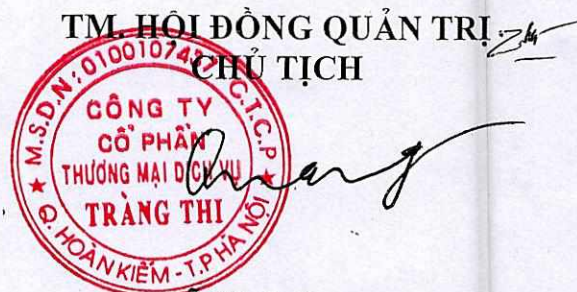 TM. HỘI ĐỒNG QUẢN TRỊ
CHỦ TỊCH
M.S.D.N: 01001074 C.T.C.P
CÔNG TY
CỔ PHẦN
THƯƠNG MẠI DỊCH VỤ
TRÀNG THI
Q. HOÀN KIẾM - T.P HÀ NỘI